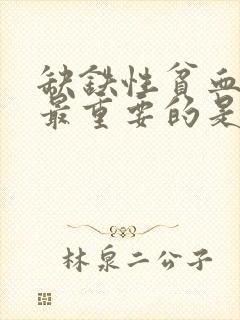 缺铁性贫血
最重要的是
林泉二公子